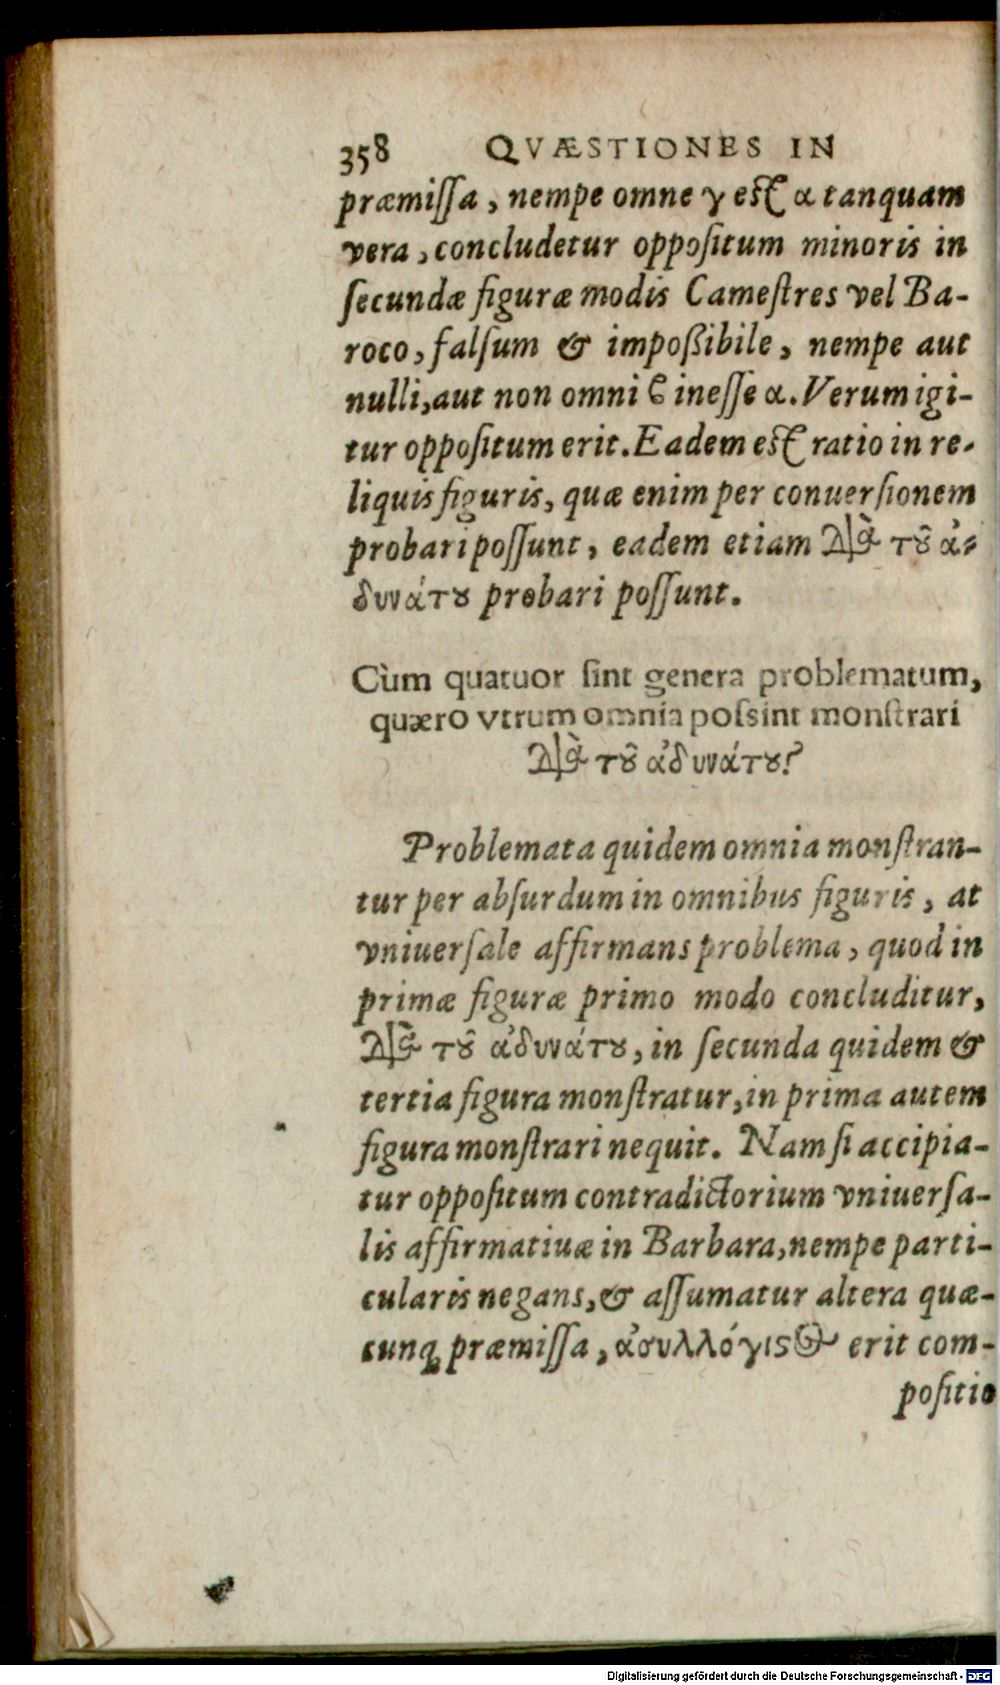 358 QVÆSTIONES IN
præmiſſa, nempe omne γ eſt α tanquam
vera, concludetur oppoſitum minoris in
ſecundæ figuræ modis Cameſtres vel Ba-
roco, falſum & impoßibile, nempe aut
nulli, aut non omni ϐ ineſſe α. Verum igi-
tur oppoſitum erit. Eadem eſt ratio in re-
liquis figuris, quæ enim per conuerſionem
probari poſſunt, eadem etiam διὰ τοῦ ἀ-
δυνάτου probari poſſunt.
Cùm quatuor ſint genera problematum,
quæro vtrum omnia poſsint monſtrari
διὰ τοῦ ἀδυνάτου?
Problemata quidem omnia monſtran-
tur per abſurdum in omnibus figuris, at
vniuerſale affirmans problema, quod in
primæ figuræ primo modo concluditur,
διὰ τοῦ ἀδυνάτου, in ſecunda quidem &
tertia figura monſtratur, in prima autem
figura monſtrari nequit. Nam ſi accipia-
tur oppoſitum contradictorium vniuerſa-
lis affirmatiuæ in Barbara, nempe parti-
cularis negans, & aſſumatur altera quæ-
cunq; præmiſſa, ἀσυλλόγιστος erit com-
poſitio
Digitalisierung gefördert durch die Deutsche Forschungsgemeinschaft - DFG